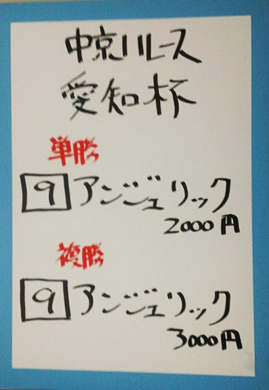 中京11レース
愛知杯
単勝
9 アンジュリック
2000円
複勝
9 アンジュリック
3000円